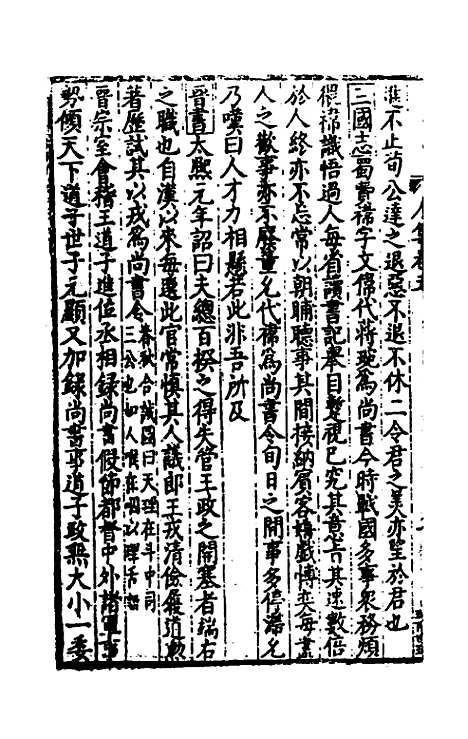 進不止荀公達之退惡不退不休二令君之美亦望於君也
三國志蜀費禕字文偉代蔣琬為尚書令時戰國多事衆務煩
禕識悟過人每省讀書記舉目暫視已究其意旨其速數倍
於人終亦不忘常以朝晡聽事其間接納賓客嬉戲博奕每盡
人之歡事亦不廢董允代禕為尚書令旬日之間事多停滯允
乃嘆曰人才力相懸若此非吾所及
晉書太熙元年詔曰夫總百揆之得失管王政之開塞者端右
之職也自漢以來每選此官常慎其人議郎王戎清儉履道
著歷試其以戎為尚書令春秋合誠圖曰天理在斗中司
三公也如人喉在咽以理舌語
晉宗至會稽王道子進位丞相録尚書假節都督中外諸軍事
勢傾天下道子世子元顯又加録尚書事道子政無大小一委